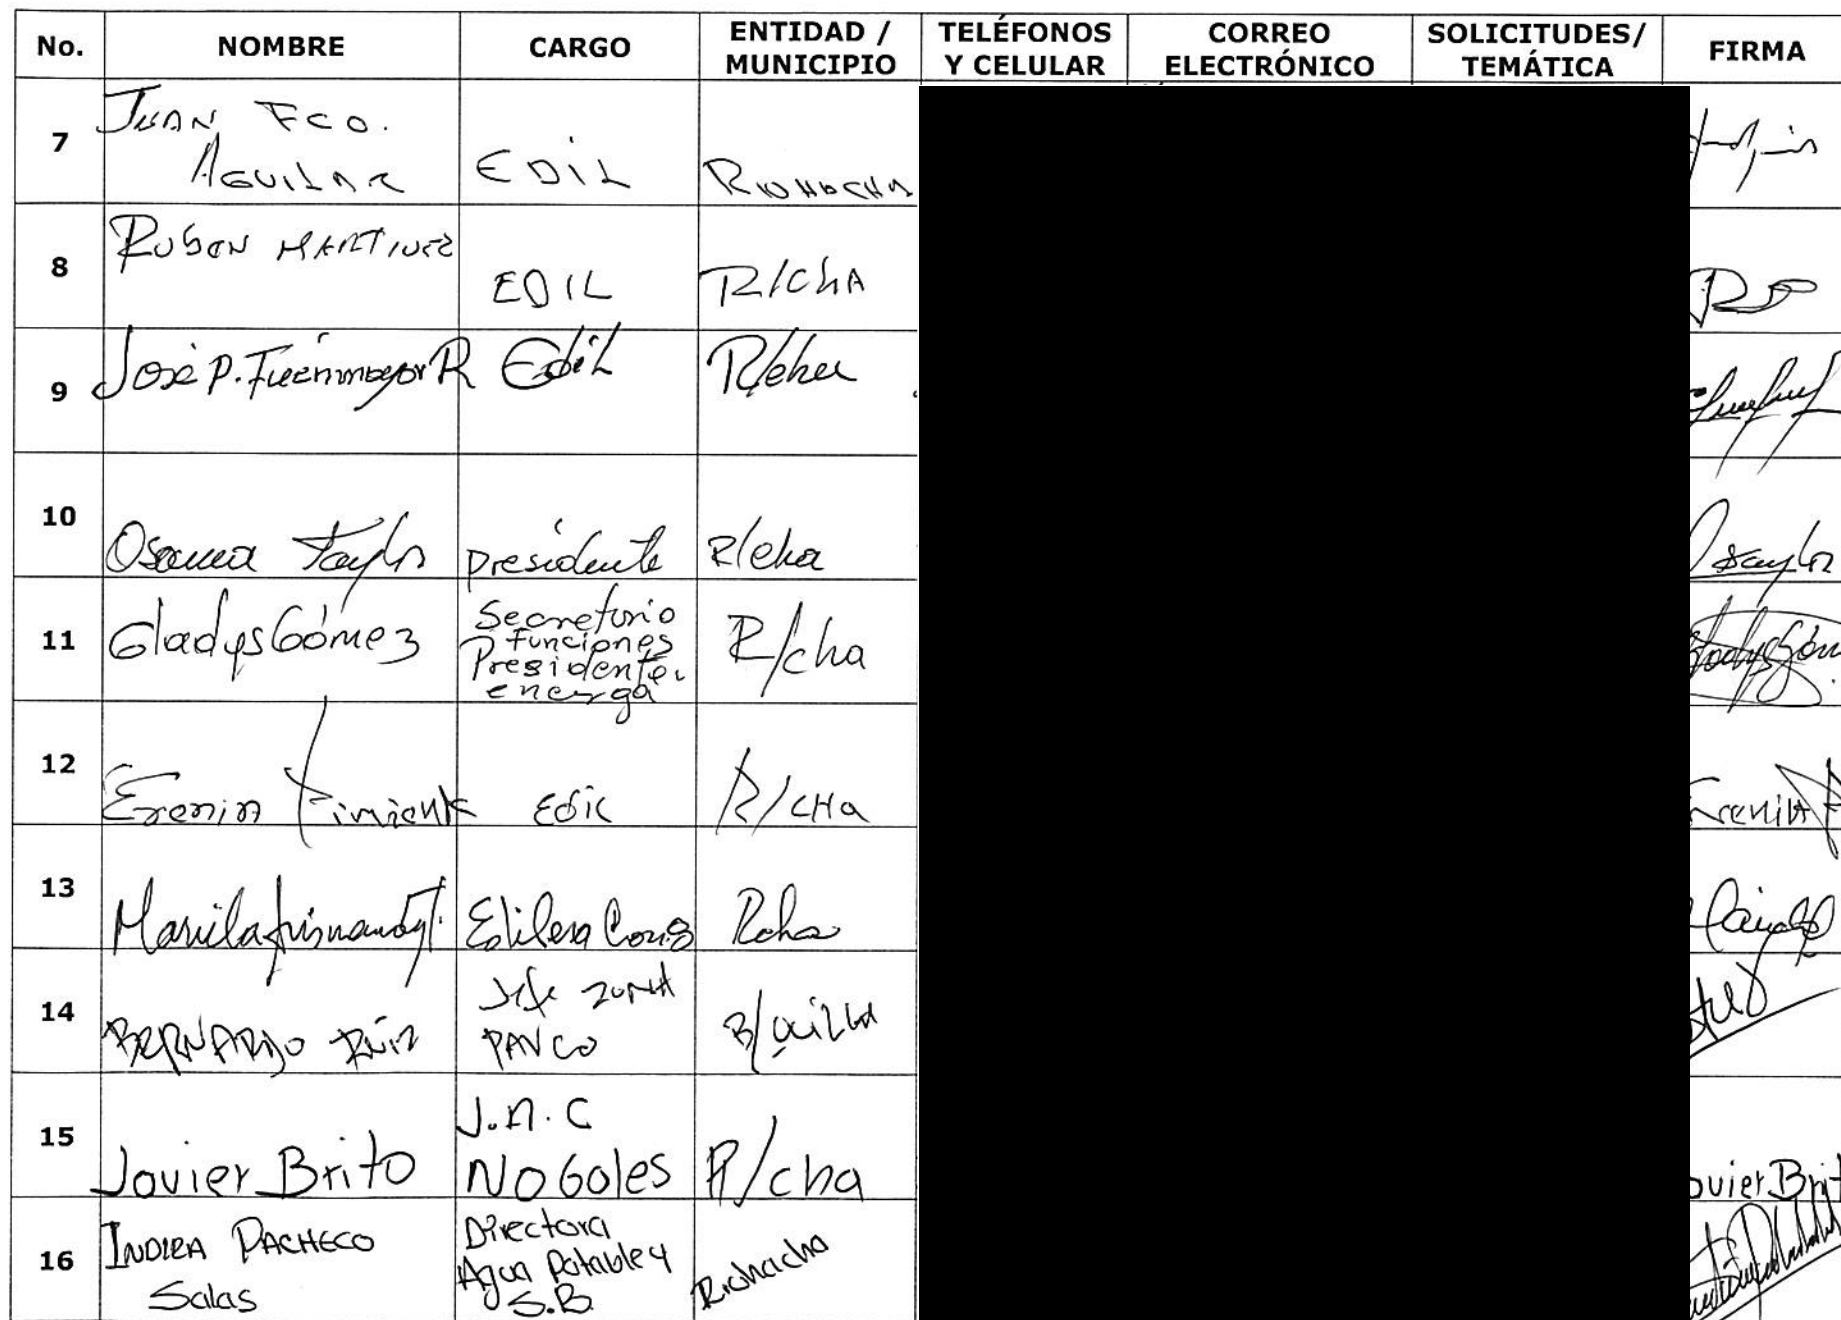 No. NOMBRE CARGO ENTIDAD / MUNICIPIO TELÉFONOS Y CELULAR CORREO ELECTRÓNICO SOLICITUDES/ TEMÁTICA FIRMA
7 JUAN FCO. AGUILAR EDIL RIOHACHA
8 RUBEN MARTINEZ EDIL R/CHA
9 José P. Fuenmayor R Edil R/cha
10 Osama Taylor presidente R/cha
11 Gladys Gómez Secretario Funciones Presidente. R/cha
12 Pimienta Edil R/CHa
13 Edilesa Rcha
14 BERNARDO RUIZ Jefe ZONA B/QuiLLA
15 Javier Brito J.A.C NOGales R/cha Javier Brit
16 INDIRA PACHECO Salas Directora Agua Potable y S.B. Riohacha